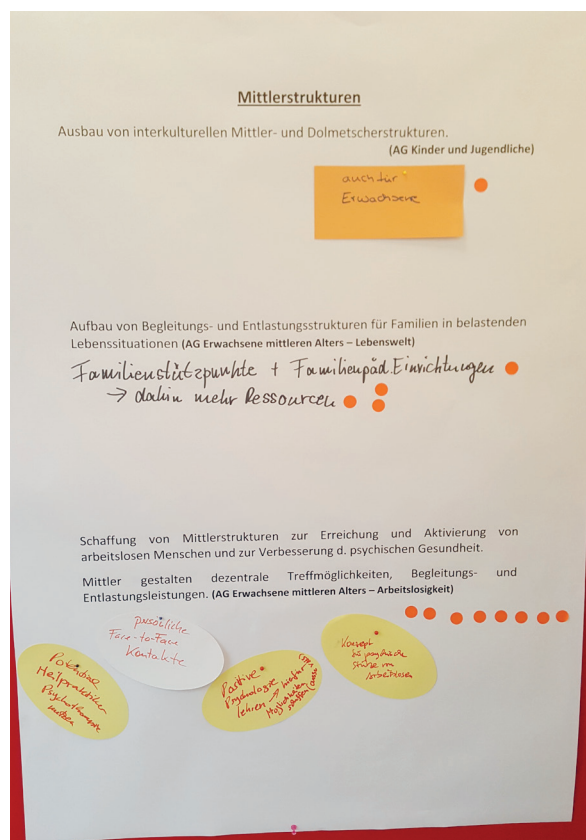 Mittlerstrukturen
Ausbau von interkulturellen Mittler- und Dolmetscherstrukturen.
(AG Kinder und Jugendliche)
auch für
Erwachsene
Aufbau von Begleitungs- und Entlastungsstrukturen für Familien in belastenden
Lebenssituationen (AG Erwachsene mittleren Alters – Lebenswelt)
Familienstützpunkte + Familienpäd. Einrichtungen
→ dahin mehr Ressourcen
Schaffung von Mittlerstrukturen zur Erreichung und Aktivierung von
arbeitslosen Menschen und zur Verbesserung d. psychischen Gesundheit.
Mittler gestalten dezentrale Treffmöglichkeiten, Begleitungs- und
Entlastungsleistungen. (AG Erwachsene mittleren Alters – Arbeitslosigkeit)
persönliche
Face-to-Face
Kontakte
Potential
Heilpraktiker
Psychotherapie
nutzen
Positive
Psychologie
lehren → hierfür
Möglichkeiten
schaffen
Konzept
psychische
Stärke von
Arbeitslosen